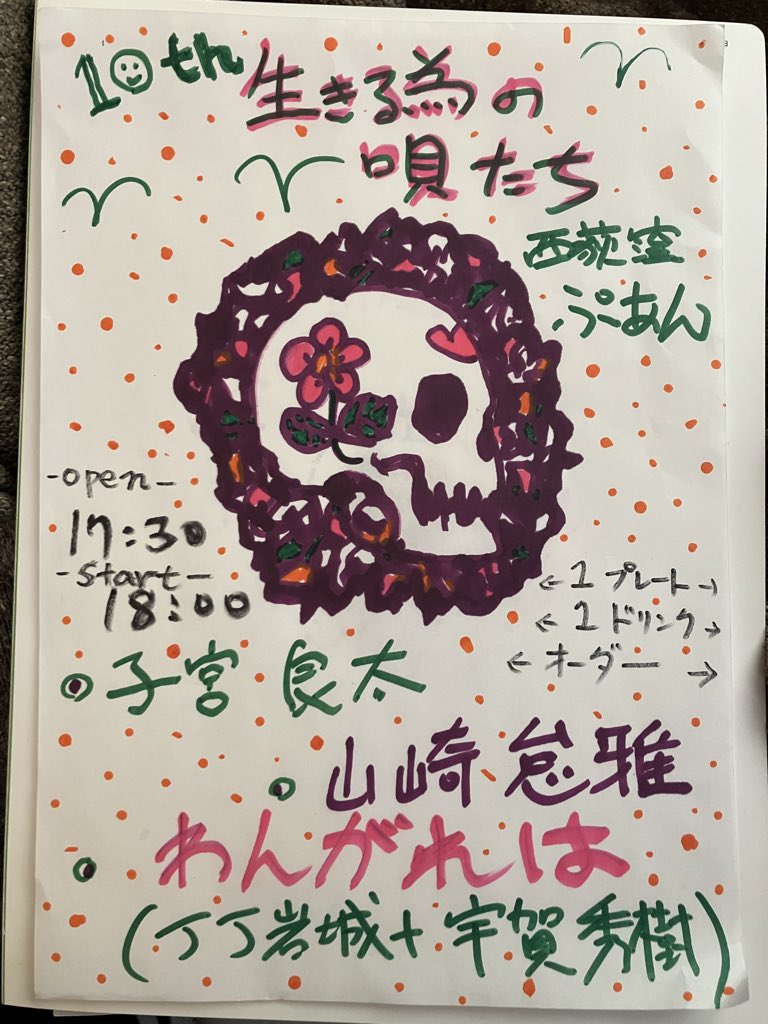 10th 生きる為の
唄たち
西荻窪
ぷーあん
-open-
17:30
-start-
18:00
←1プレート→
←1ドリンク→
←オーダー→
子宮 良太
山崎 怠雅
わんがれは
(丁丁岩城+宇賀秀樹)